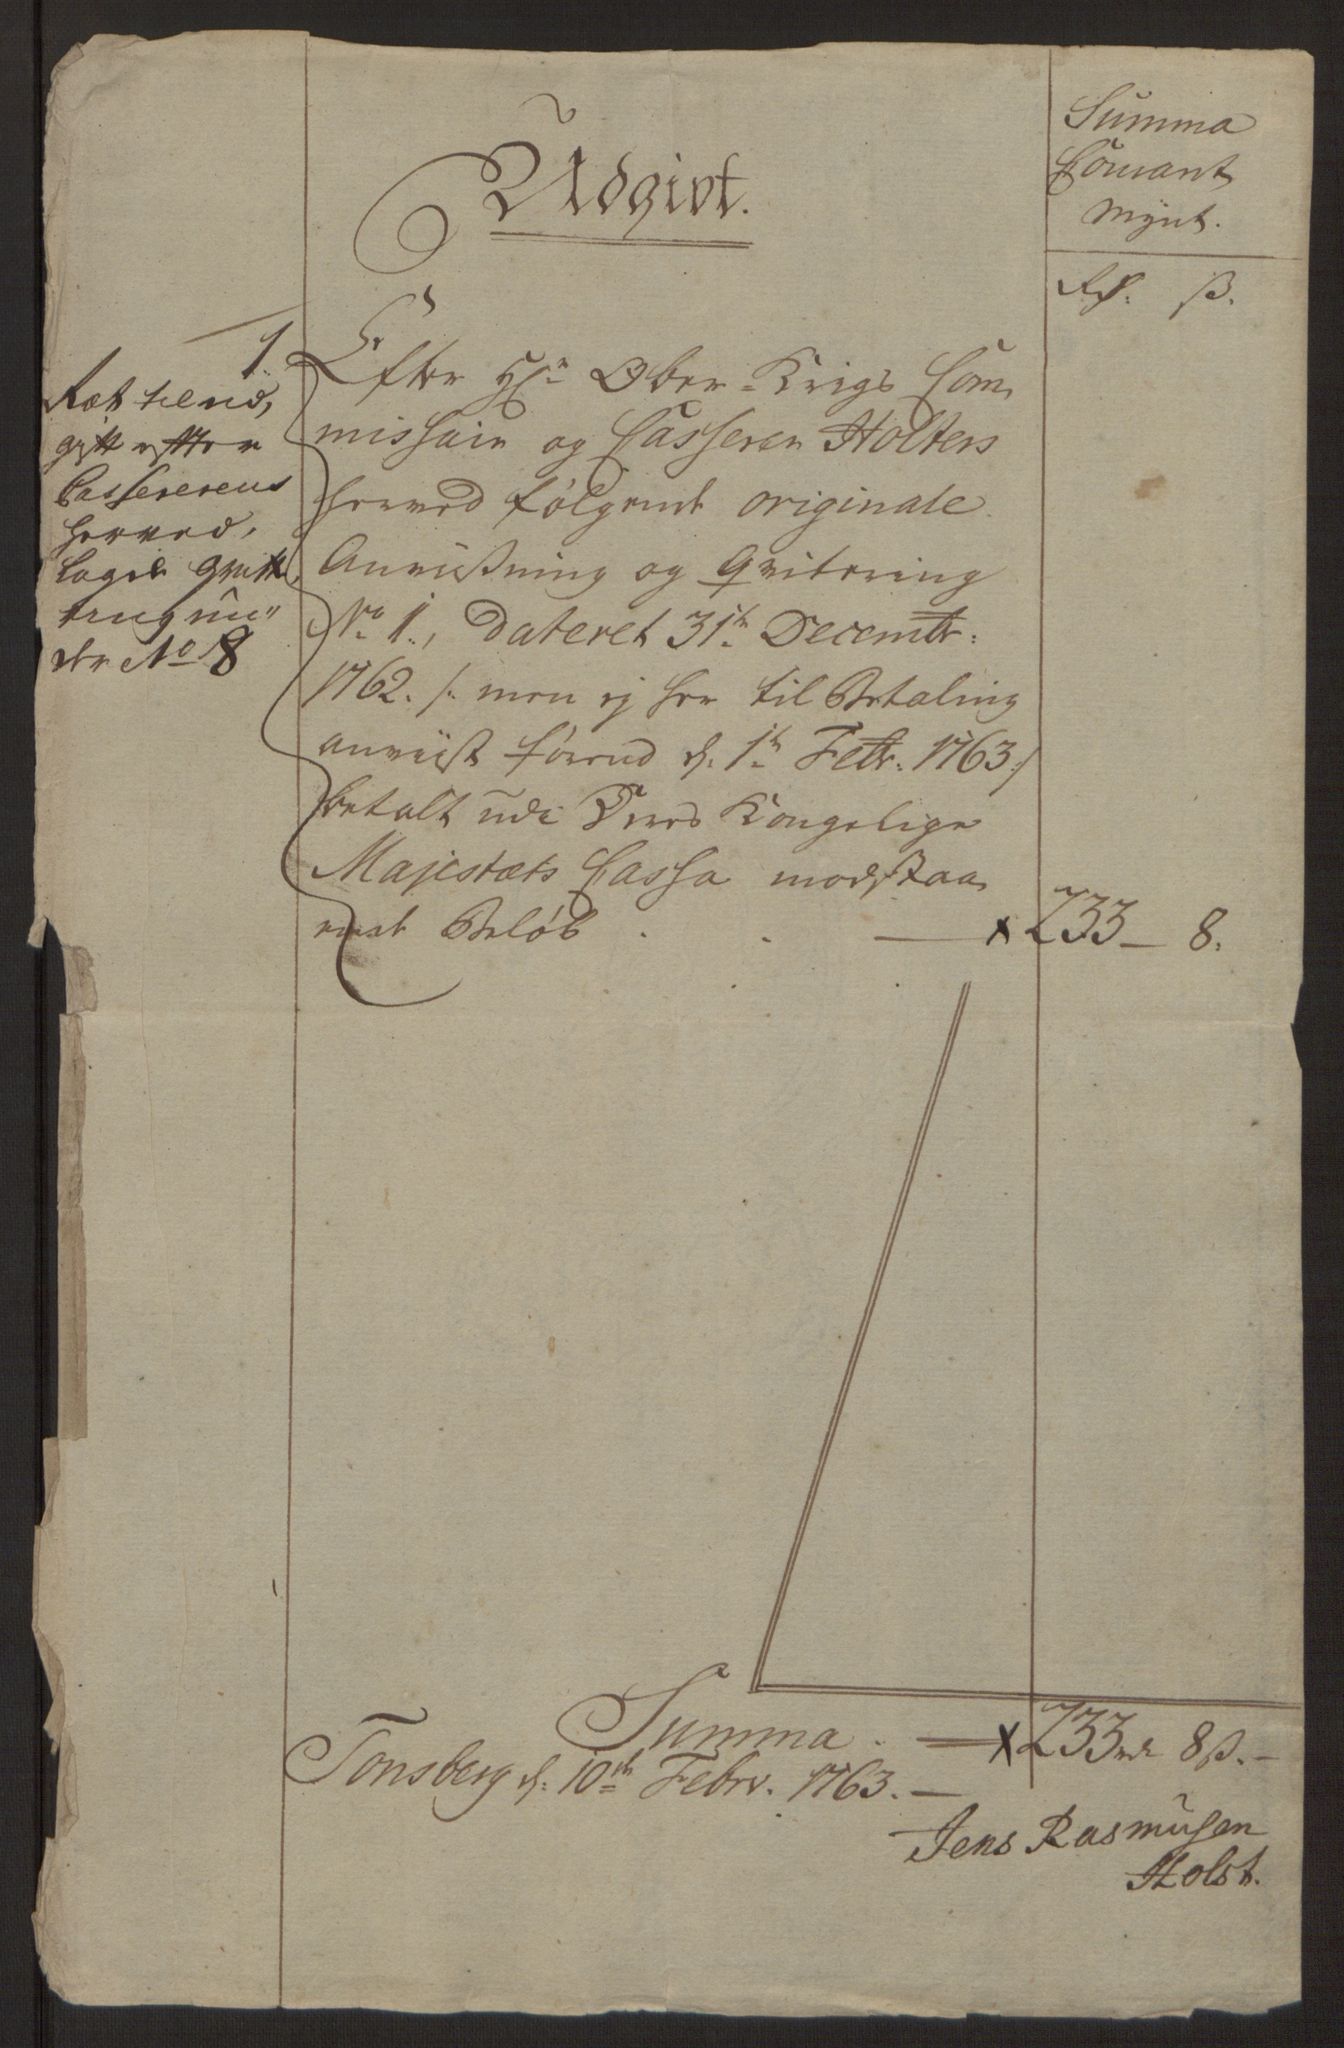 Udgivt.
Summa
Courant
Mynt.
Rd. ß.
1
Ræt til ud,
gift efter
Cassererens
herved,
lagde Qvit
tering un"
der No 8
Efter Hr. Ober-Krigs Com,
missair og Casserer Holters
herved følgende originale
Anviisning og Qvitering
No. 1., dateret 31te Decembr:
1762. /: men ej her til Betaling
anviist førend d. 1te Febr. 1763 :/
betalt udi Deres Kongelige
Majestæts Cassa modstaa,
ende Beløb . . — x 233 — 8.
Summa . — x 233 rd 8 ß. —
Tonsberg d. 10de Febrv. 1763. —
Jens Rasmusen
Holst.